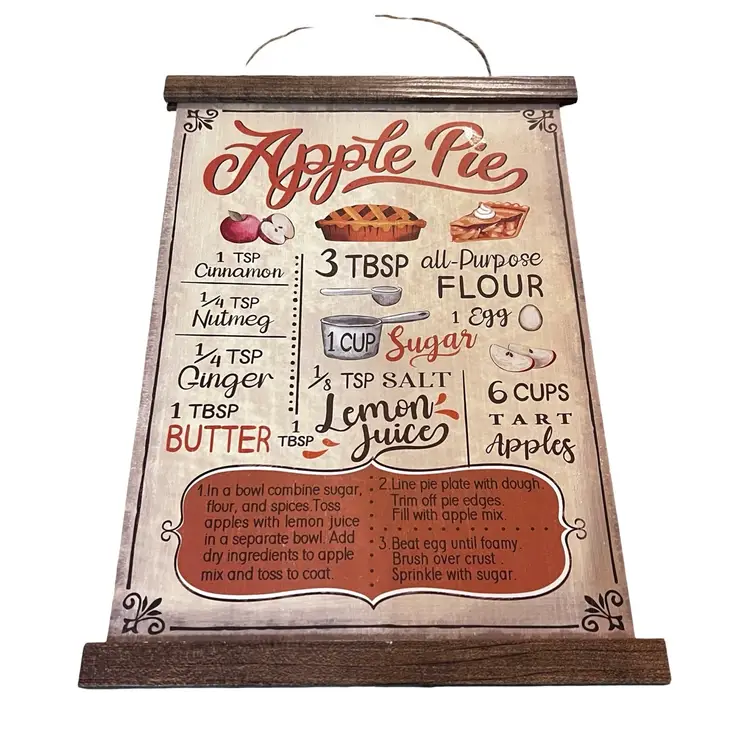 Apple Pie
1 TSP
Cinnamon
1/4 TSP
Nutmeg
1/4 TSP
Ginger
1 TBSP
BUTTER
3 TBSP all-Purpose
FLOUR
1 Egg
1 CUP Sugar
1/8 TSP SALT
1 TBSP Lemon
Juice
6 CUPS
TART
Apples
1.In a bowl combine sugar,
flour, and spices.Toss
apples with lemon juice
in a separate bowl. Add
dry ingredients to apple
mix and toss to coat.
2.Line pie plate with dough.
Trim off pie edges.
Fill with apple mix.
3.Beat egg until foamy.
Brush over crust .
Sprinkle with sugar.